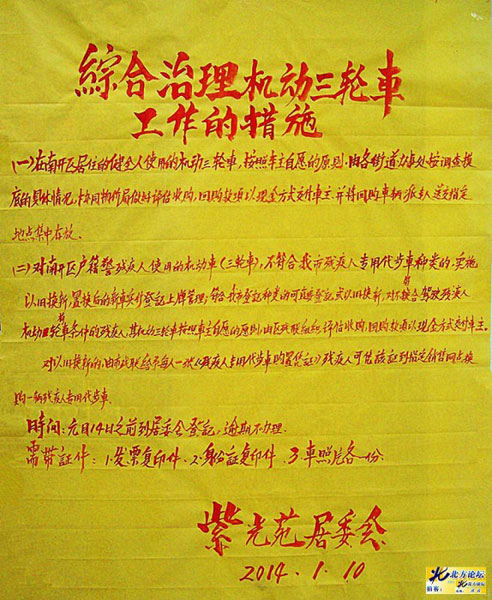 綜合治理机动三轮車
工作的措施
(一)在南开区居住的健全人使用的机动三轮車,按照車主自愿的原则,由各街道办事处按调查摸
底的具体情况,协同物价局做好评估收购,回购款项以现金方式交付車主,并将回购車辆派专人送交指定
地点集中存放。
(二)对南开区户籍暨残疾人使用的机动車(三轮車),不符合我市残疾人专用代步車种类的,实施
以旧换新,置换后的新車实行登记上牌管理;符合我市登记种类的可直接登记或以旧换新;对不换合驾驶残疾人
机动轮車条件的残疾人,其机动三轮車按照車主自愿的原则,由区残联组织评估收购,回购款项以现金方式交付車主。
对以旧换新的,由市残联给予每人一张《残疾人专用代步車购置凭证》残疾人可凭该证到指定销售网点换
购一辆残疾人专用代步車
時间:元月14日之前到居委会登記,逾期不办理.
需带証件:1.发票复印件.2.身份証复印件.3車照片各一份.
紫光苑居委会
2014.1.10
北方论坛
北方论坛